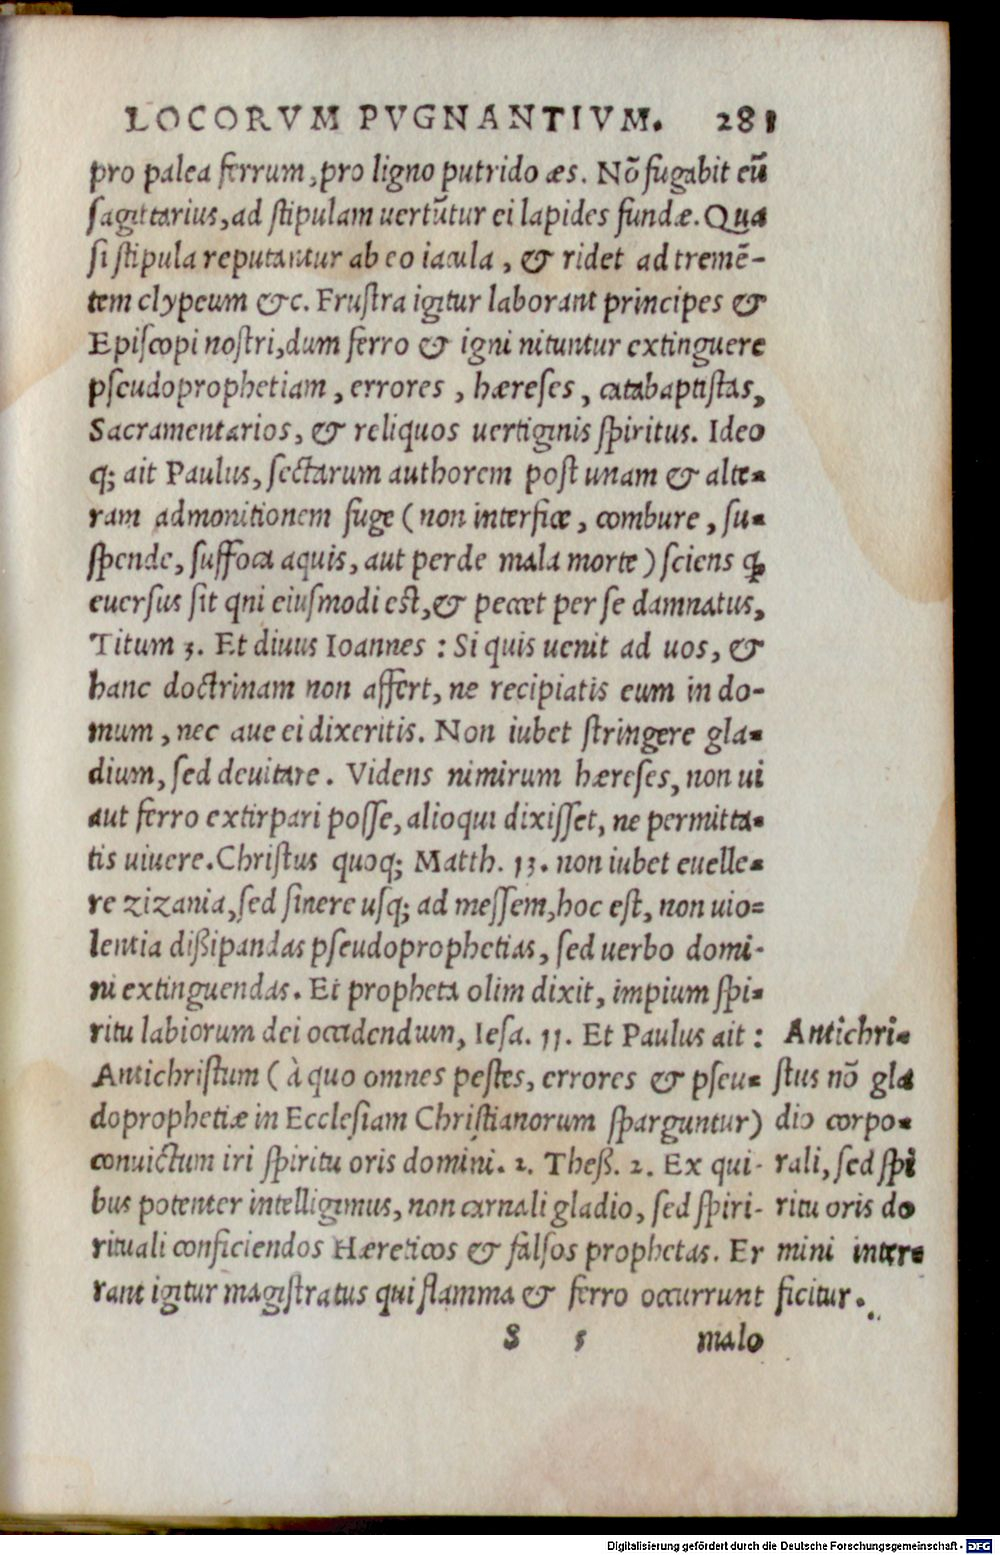 LOCORVM PVGNANTIVM. 281
pro palea ferrum, pro ligno putrido æs. Nō fugabit eū
ſagittarius, ad ſtipulam uertūtur ei lapides fundæ. Qua
ſi ſtipula reputantur ab eo iacula, & ridet ad tremē-
tem clypeum &c. Fruſtra igitur laborant principes &
Epiſcopi noſtri, dum ferro & igni nituntur extinguere
pſeudoprophetiam, errores, hæreſes, catabaptiſtas,
Sacramentarios, & reliquos uertiginis ſpiritus. Ideo
q; ait Paulus, ſectarum authorem poſt unam & alte-
ram admonitionem fuge (non interfice, combure, ſu-
ſpende, ſuffoca aquis, aut perde mala morte) ſciens ꝙ
euerſus ſit qni eiuſmodi eſt, & peccet per ſe damnatus,
Titum 3. Et diuus Ioannes: Si quis uenit ad uos, &
hanc doctrinam non affert, ne recipiatis eum in do-
mum, nec aue ei dixeritis. Non iubet ſtringere gla-
dium, ſed deuitare. Videns nimirum hæreſes, non ui
aut ferro extirpari poſſe, alioqui dixiſſet, ne permitta-
tis uiuere. Chriſtus quoq; Matth. 13. non iubet euelle-
re zizania, ſed ſinere uſq; ad meſſem, hoc eſt, non uio-
lentia dißipandas pſeudoprophetias, ſed uerbo domi-
ni extinguendas. Et propheta olim dixit, impium ſpi-
ritu labiorum dei occidendum, Ieſa. 11. Et Paulus ait:
Antichriſtum (à quo omnes peſtes, errores & pſeu-
doprophetiæ in Eccleſiam Chriſtianorum ſparguntur)
conuictum iri ſpiritu oris domini. 2. Theß. 2. Ex qui-
bus potenter intelligimus, non carnali gladio, ſed ſpiri-
rituali conficiendos Hæreticos & falſos prophetas. Er
rant igitur magiſtratus qui flamma & ferro occurrunt
Antichri-
ſtus nō gla
dio corpo-
rali, ſed ſpi
ritu oris do
mini inter-
ficitur.
S 5 malo
Digitalisierung gefördert durch die Deutsche Forschungsgemeinschaft - DFG